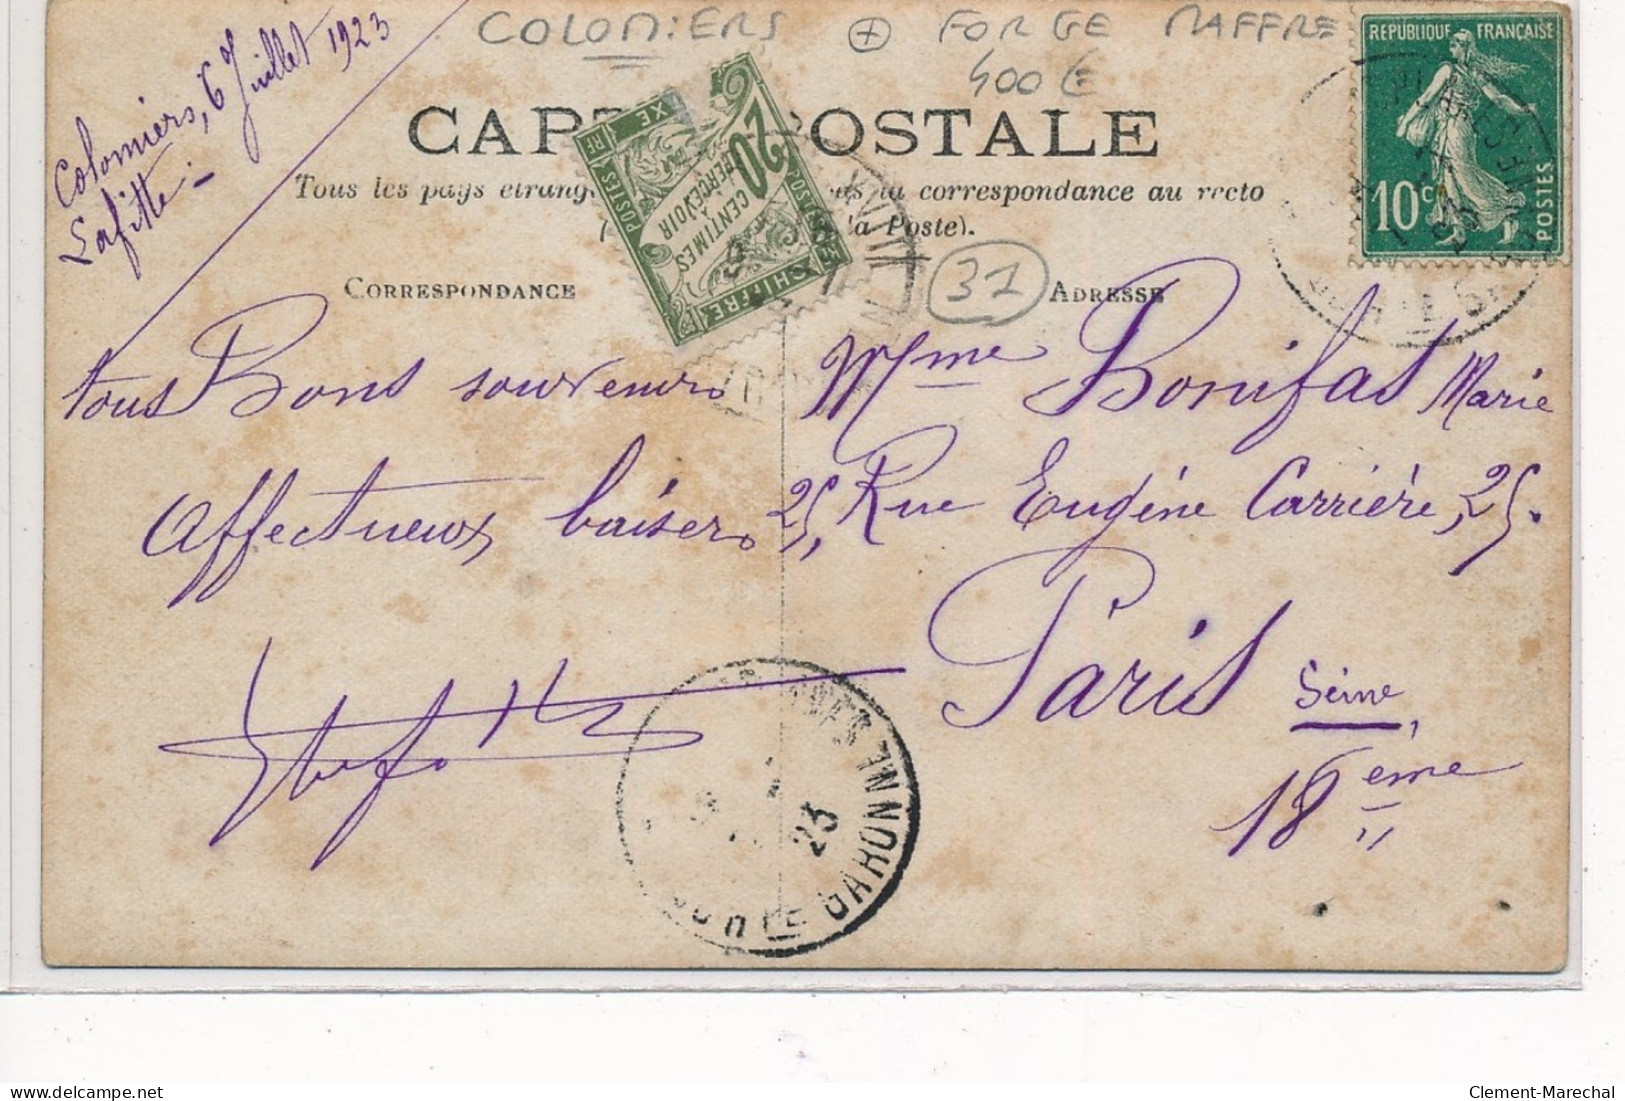 COLOMIERS + FORGE MAFFRE
400 €
Colomiers, 6 Juillet 1923
Lafitte
REPUBLIQUE FRANÇAISE
10c
POSTES
CARTE POSTALE
Tous les pays étrang
la correspondance au recto
la Poste).
20 CENTIMES
A PERCEVOIR
POSTES
CHIFFRE
TAXE
RF
37
CORRESPONDANCE
ADRESSE
tous Bons souvenirs
Affectueux baisers
Mme Bonifas Marie
25, Rue Eugène Carrière, 25.
Paris Seine,
18ème
23
GARONNE
delcampe.net
Clement-Marechal